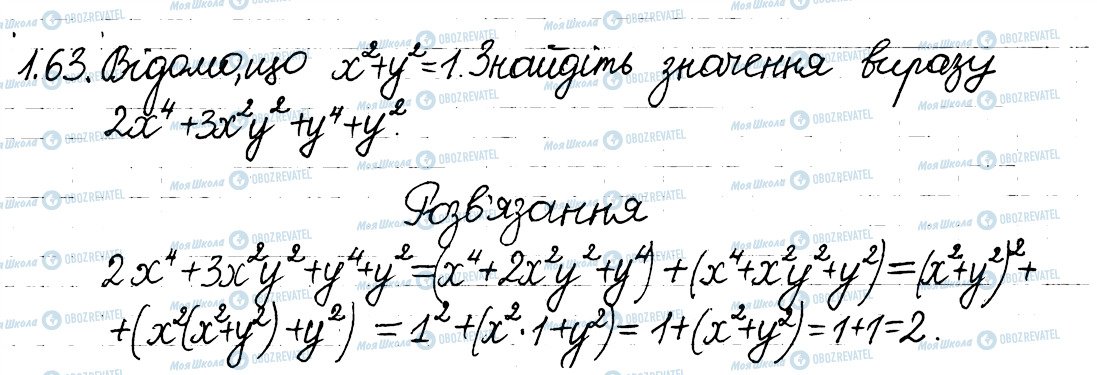 1.63. Відомо, що x²+y²=1. Знайдіть значення виразу
2x⁴+3x²y²+y⁴+y².
Розв'язання
2x⁴+3x²y²+y⁴+y²=(x⁴+2x²y²+y⁴)+(x⁴+x²y²+y²)=(x²+y²)²+
+(x²(x²+y²)+y²) = 1²+(x²·1+y²)= 1+(x²+y²)=1+1=2.